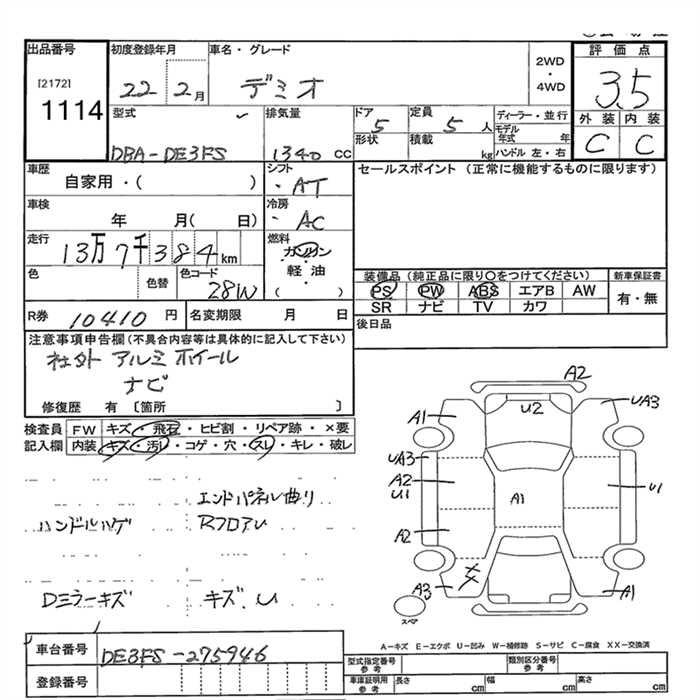 出品番号
[2172]
1114
初度登録年月
22 2月
車名・グレード
デミオ
2WD
・
4WD
評価点
3.5
外装 内装
C C
型式
DBA-DE3FS
排気量
1340 cc
ドア
5
形状
定員
5人
積載
kg
ディーラー・並行
モデル
年式 年
ハンドル 左・右
車歴
自家用・( )
シフト
・AT
セールスポイント (正常に機能するものに限ります)
車検
年 月( 日)
冷房
・AC
走行
13万7千384km
燃料
ガソリン
・ ・
軽油
( )
色
色替
色コード
28W
装備品 (純正品に限り○をつけてください)
新車保証書
PS PW ABS エアB AW
SR ナビ TV カワ
有・無
R券 10410 円
名変期限 月 日
後日品
注意事項申告欄 (不具合内容等は具体的に記入して下さい)
社外 アルミホイール
ナビ
修復歴 有 〔箇所 〕
検査員
記入欄
FW キズ・飛石・ヒビ割・リペア跡・×要
内装 キズ・汚レ・コゲ・穴・スレ・キレ・破レ
エンドパネル曲り
ハンドルハゲ RフロアU
Dミラーキズ キズ、U
A2
A1 U2 UA3
UA3
A2
U1 A1 U1
A2
A3
U A1
スペア
A-キズ E-エクボ U-凹み W-補修跡 S-サビ C-腐食 XX-交換済
車台番号 DE3FS-275946
登録番号
型式指定番号
参考
類別区分番号
参考
車庫証明用
参考
長さ cm 幅 cm 高さ cm